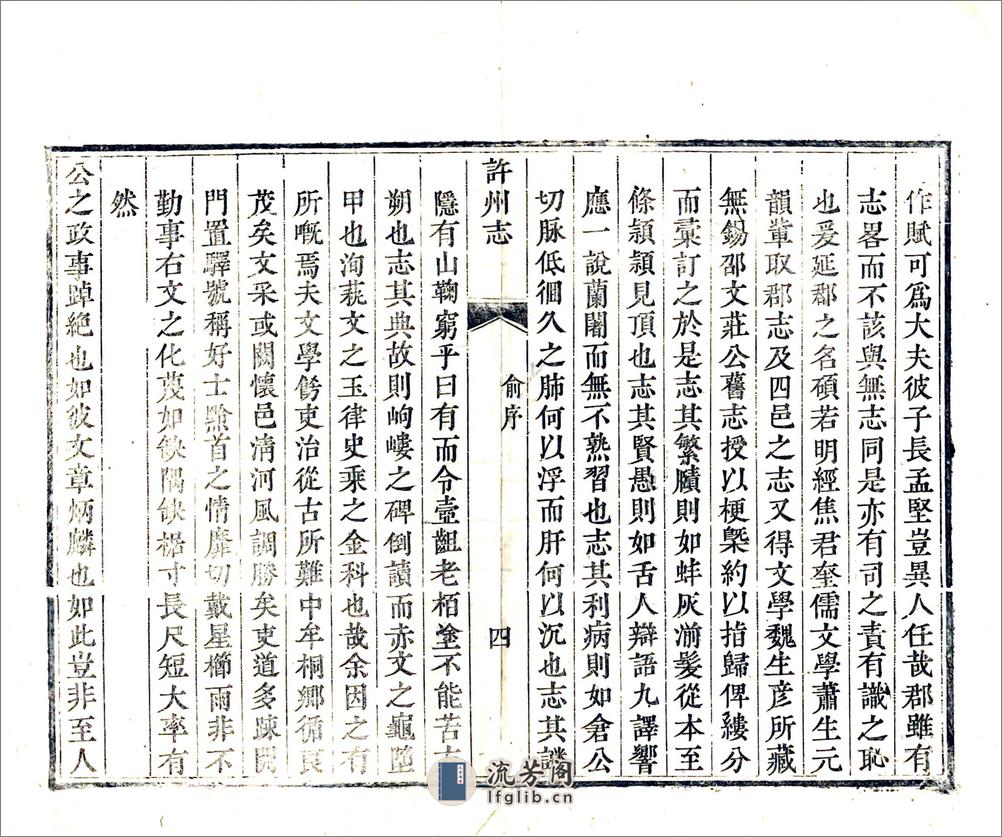 作賦可爲大夫彼子長孟堅豈異人任哉郡雖有
志畧而不該與無志同是亦有司之責有識之恥
也爰延郡之名碩若明經焦君奎儒文學蕭生元
韻輩取郡志及四邑之志又得文學魏生彦所藏
無錫邵文莊公舊志授以梗槩約以指歸俾縷分
而彚訂之於是志其繁賾則如蚌灰湔髮從本至
條頴頴見頂也志其賢愚則如舌人辯語九譯響
應一說蘭闍而無不熟習也志其利病則如倉公
切脉低徊久之肺何以浮而肝何以沉也志其譏
許州志
俞序
四
隱有山鞠窮乎曰有而令壺齟老栢
不能苦
朔也志其典故則岣嶁之碑倒讀而赤文之龜墮
甲也洵萟文之玉律史乘之金科也哉余因之有
所嘅焉夫文學餙吏治從古所難中牟桐鄉循良
茂矣文采或闕懷邑淸河風調勝矣吏道多疎關
門置驛號稱好士黔首之情靡切戴星櫛雨非不
勤事右文之化蔑如缺隅缺裾寸長尺短大率有
然
公之政事踔絶也如彼文章炳麟也如此豈非至人
流芳閣
lfglib.cn